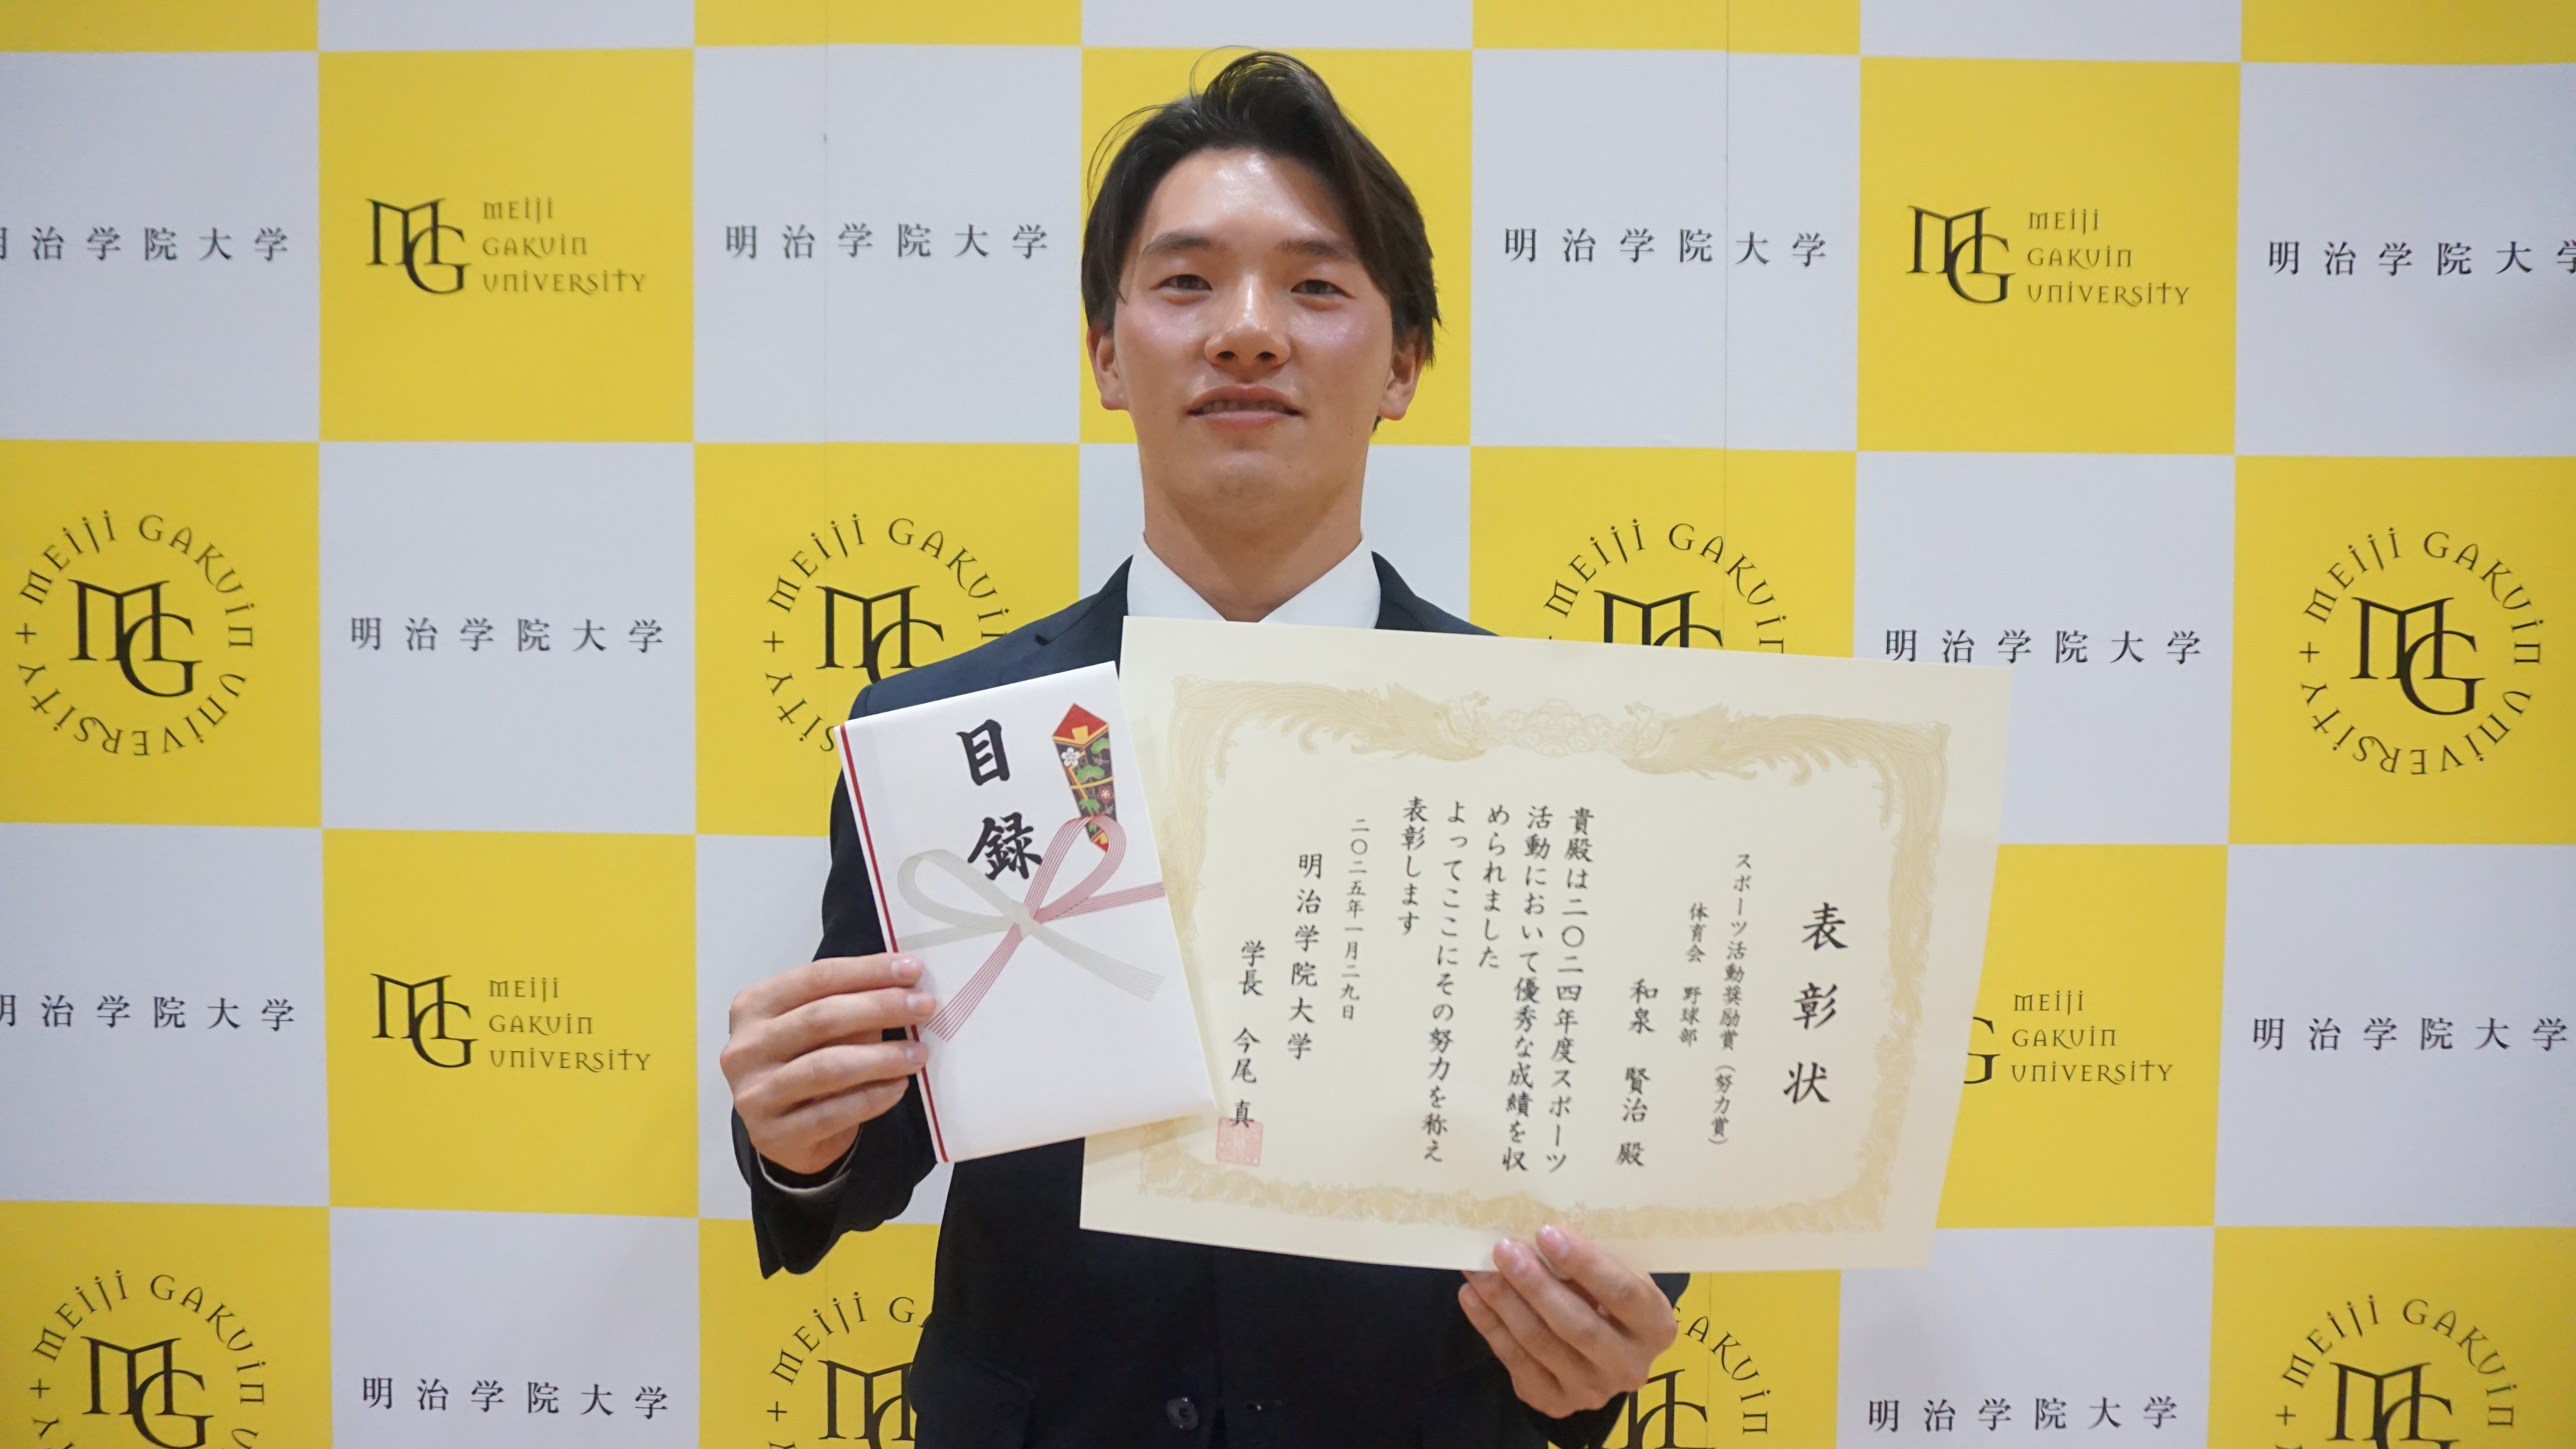 明治学院大学
MEIJI
GAKUIN
UNIVERSITY
明治学院大学
明治学院大学
MEIJI
GAKUIN
UNIVERSITY
明治学院大学
MG
MG
MEIJI GAKUIN UNIVERSITY
MG
明治学院大学
MEIJI GAKUIN
MG
MEIJI GAKUIN
明治学院大学
MEIJI GAKUIN UNIVERSITY
MG
目録
表彰状
スポーツ活動奨励賞（努力賞）
体育会 野球部
和泉 賢治 殿
貴殿は二〇二四年度スポーツ
活動において優秀な成績を収
められました
よってここにその努力を称え
表彰します
二〇二五年一月二九日
明治学院大学
学長 今尾 真
治学院大学
MG
MEIJI
GAKUIN
UNIVERSITY
MEIJI
GAKUIN
UNIVERSITY
明治学院大学
MEIJI GAKUIN
MG
明治学院大学
MEIJI
GAKUIN
明治学院大学
MEIJI GAKUIN
MG